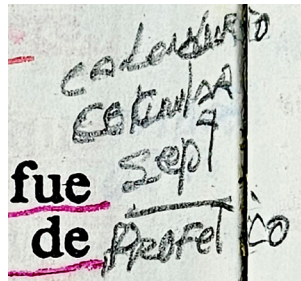 calendario
columna
sept
fue
de Profético